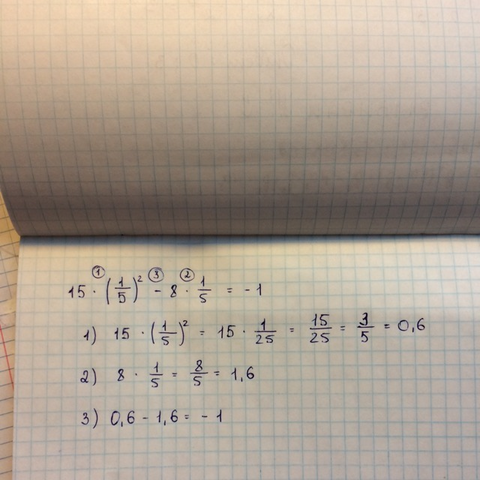 15 · (1/5)² - 8 · 1/5 = -1
1) 15 · (1/5)² = 15 · 1/25 = 15/25 = 3/5 = 0,6
2) 8 · 1/5 = 8/5 = 1,6
3) 0,6 - 1,6 = -1